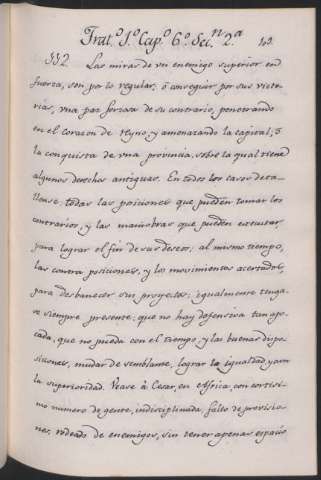 Trat.º 1º Cap.º 6º Sec.n 2.ª
332 Las miras de vn enemigo superior en
fuerza, son por lo regular; ô conseguir por sus victo-
rias, vna paz forzosa de su contrario, penetrando
en el corazon de reyno, y amenazando la capital; ô
la conquista de vna provincia, sobre la qual tiene
algunos derechos antiguos. En todos los casos deta-
llense, todas las posiciones que pueden tomar los
contrarios, y las maniobras que pueden executar
para lograr el fin de sus deseos; al mismo tiempo,
las contra posiciones, y los movimientos acertados,
para desbanecer sus proyectos: egualmente tenga-
se siempre presente; que no hay defensiva tan apo-
cada, que no pueda con el tiempo, y las buenas dispo-
siciones, mudar de semblante, lograr la igualdad y aun
la superioridad. Vease à Cesar, en Africa, con cortisi-
mo numero de gente, indisciplinada, falto de provisio-
nes, rodeado de enemigos, sin tener apenas espacio